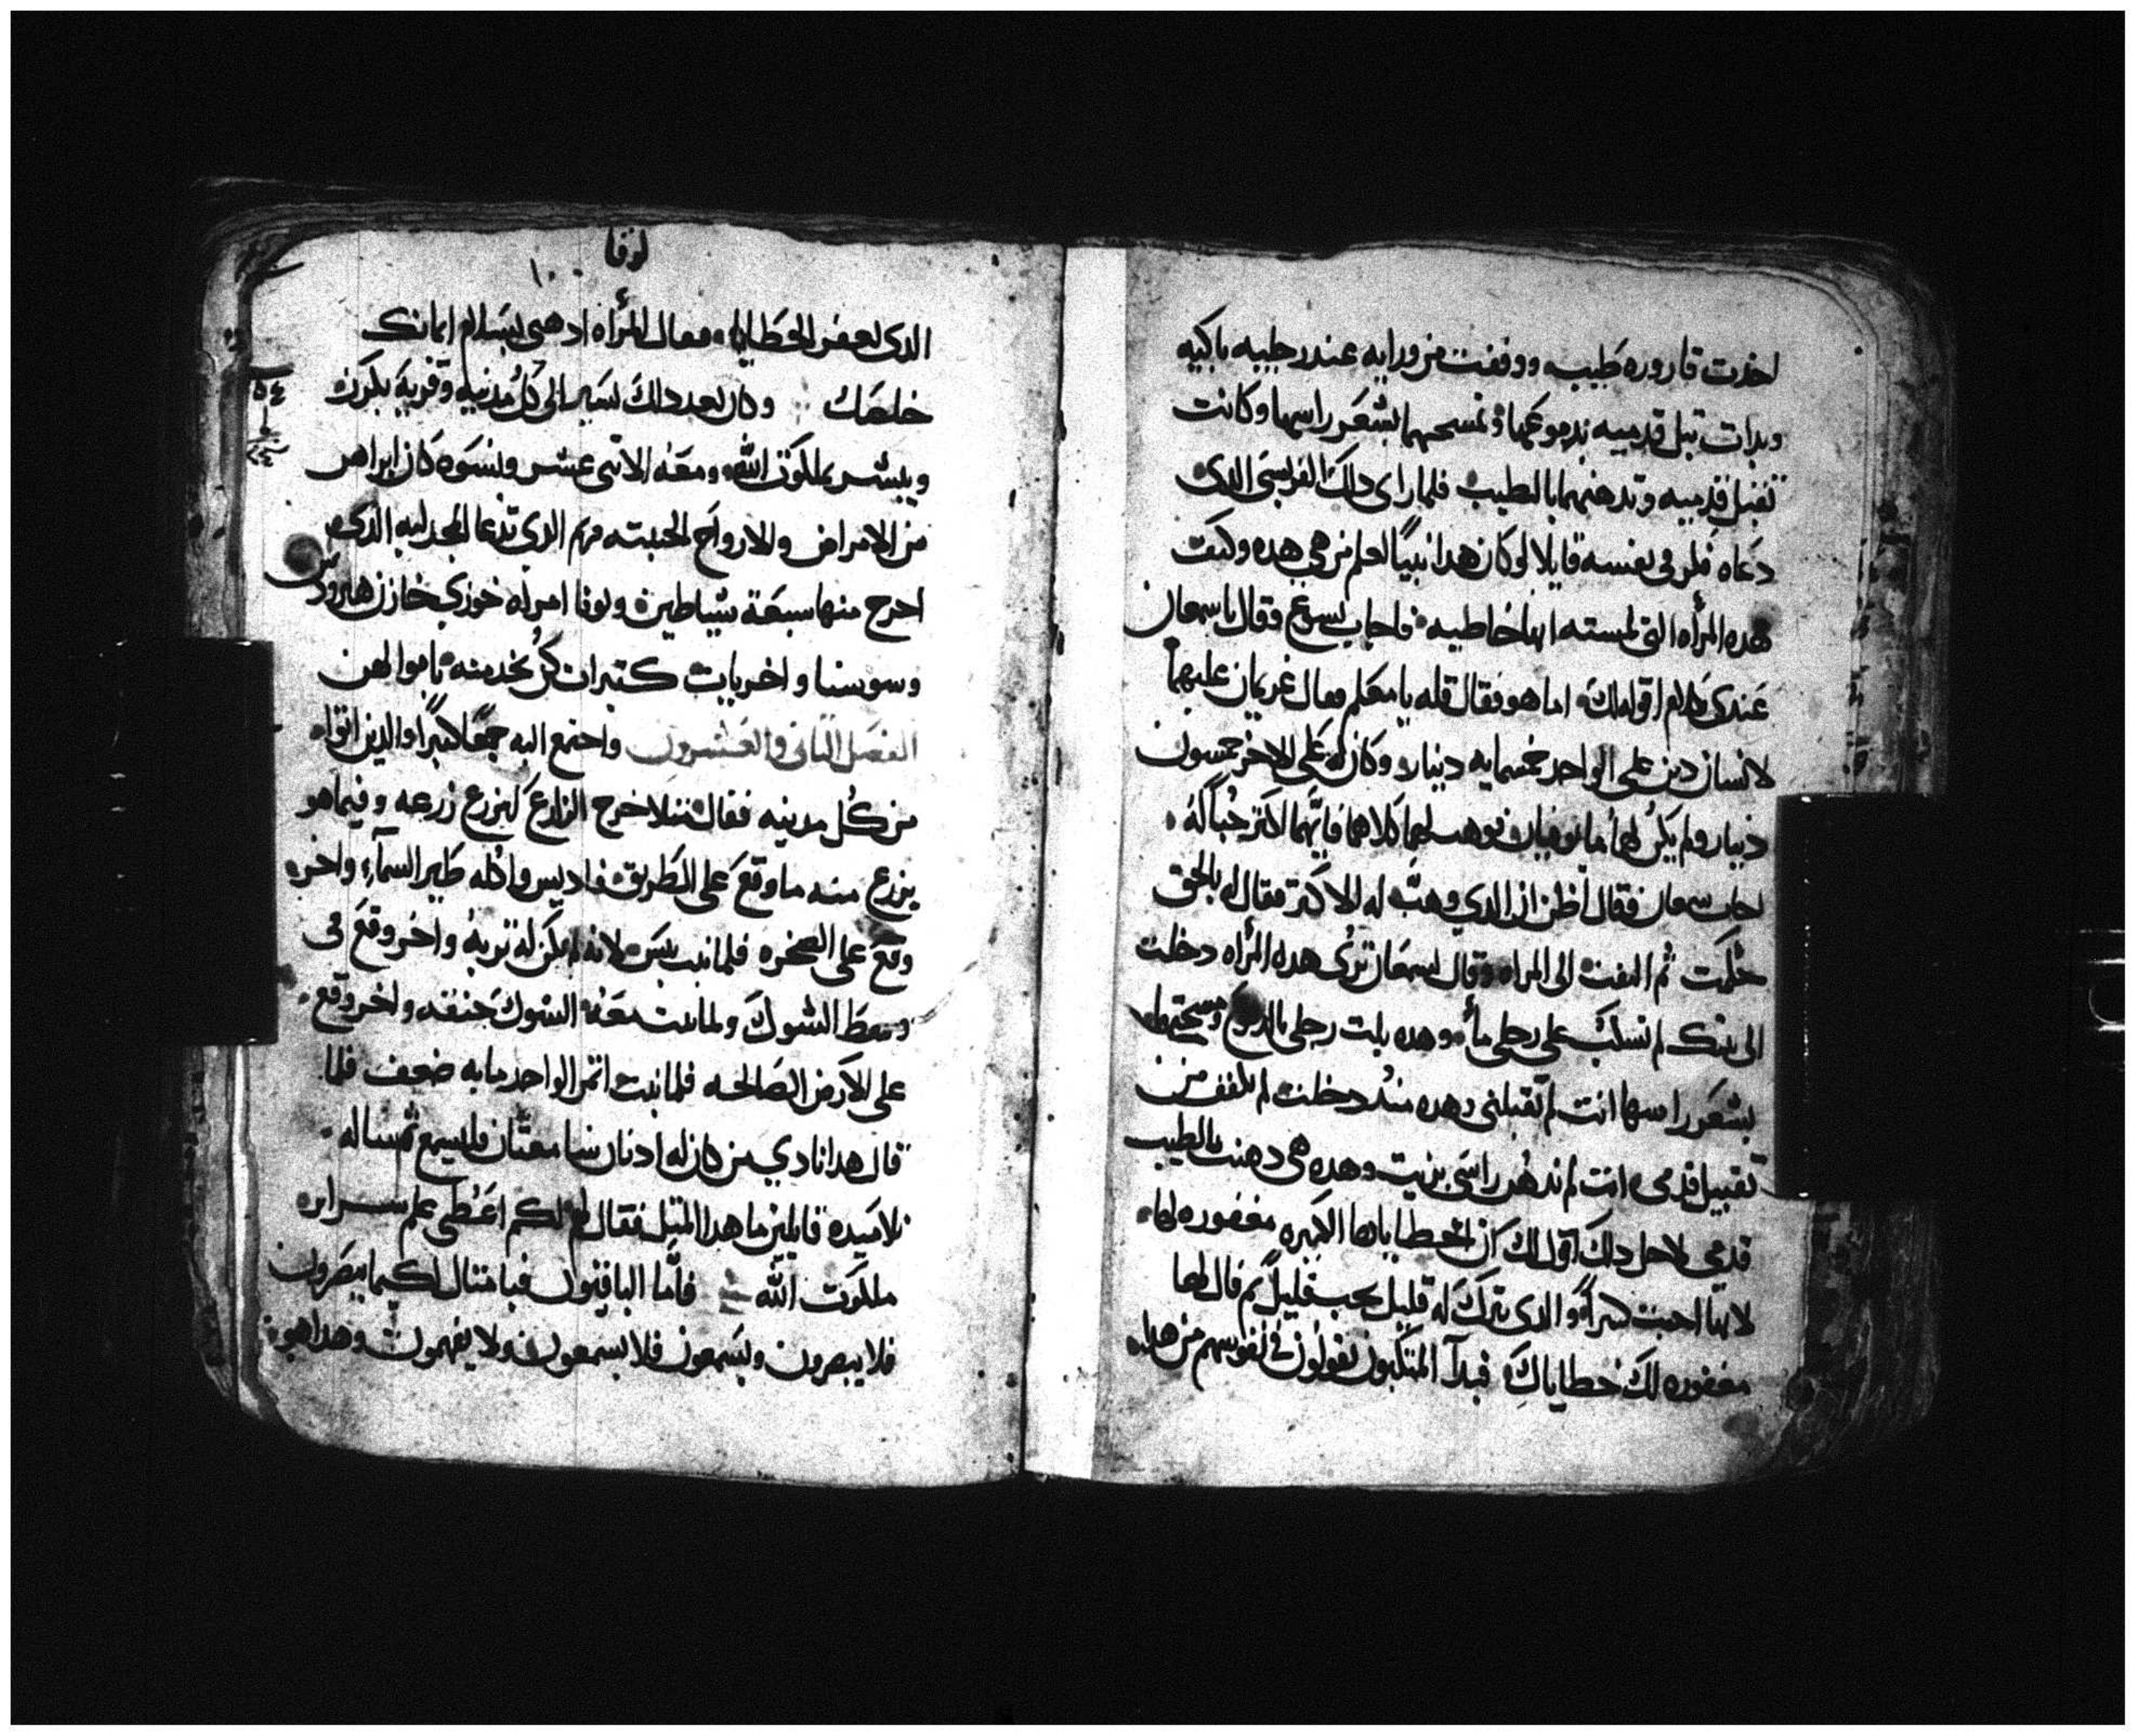 اخذت قاروره طيب ووقفت من ورايه عند رجليه باكيه
وبدات تبل قدميه بدموعها وتمسحهما بشعر راسها وكانت
تقبل قدميه وتدهنهما بالطيب فلما راى دلك الفريسى الدى
دعاه فكر فى نفسه قايلا لو كان هدا نبيا لعلم من هى هده وكيف
هده المرأه التى لمسته انها خاطيه فاجاب يسوع وقال ياسمعان
عندى كلام اقوله لك اما هو فقال قله يا معلم فقال غريمان عليهما
لانسان دين على الواحد خمسمايه دينار وكان له على الاخر خمسون
دينار ولم يكن لهما ما يوفيان فوهب لهما كلاهما فايهما اكتر حبا له
اجاب سمعان فقال اظن ان الدي وهب له الاكتر فقال له بالحق
حكمت ثم التفت الى المراه وقال لسمعان ترى هده المرأه دخلت
الى بيتك لم تسكب على رجلى مأ وهده بلت رجلى بالدموع ومسحتهما
بشعر راسها انت لم تقبلنى وهده مند دخلت لم تكفف من
تقبيل قدمى انت لم تدهن راسى بزيت وهده هى دهنت بالطيب
قدمى لاجل دلك اقول لك ان خطاياها الكتيره مغفوره لها
لانها احبت كتيرا والدى يترك له قليل يحب قليل ثم قال لها
مغفوره لك خطاياك فبدأ المتكيون يقولون فى نفوسهم من هدا
لوقا
١٠
الدى يغفر الخطايا فقال للمرأه ادهبى بسلام ايمانك
خلصك وكان بعد دلك يسير الى كل مدنيه وقريه يكرز
ويبشر بملكوت الله ومعه الاتنى عشر ونسوه كان ابراهن
من الامراض والارواح الخبيته مريم الدي تدعا المجدليه الدى
اخرج منها سبعة شياطين ويونا امراه خوزي خازن هيرودس
وسوسنا واخريات كتيرات كن يخدمنه باموالهن
الفصل التانى والعشرون واجتمع اليه جمعا كبيرا والدين اتواه
من كل مدينه فقال متلا خرج الزارع ليزرع زرعه وفيما هو
يزرع منه ما وقع على الطريق فاديس واكله طير السمآء واخر
وقع على الصخره فلما نبت يبس لانه لم يكن له تربه واخر وقع فى
وسط الشوك ولما نبت معه الشوك خنقه واخر وقع
على الارض الصالحه فلما نبت اتمر الواحد مايه ضعف فلما
قال هدا نادي من كان له ادنان سامعتان فليسمع تم ساله
تلاميده قايلين ما هدا المتل فقال لهم لكم اعطى علم سراير
ملكوت الله فاما الباقيون فبامتال لكيما يبصرون
فلا يبصرون ويسمعون فلا يسمعون ولا يفهمون وهدا هو